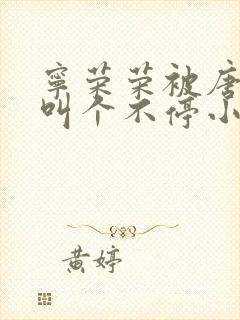 寧荣荣被唐
叫个不停小
黄婷